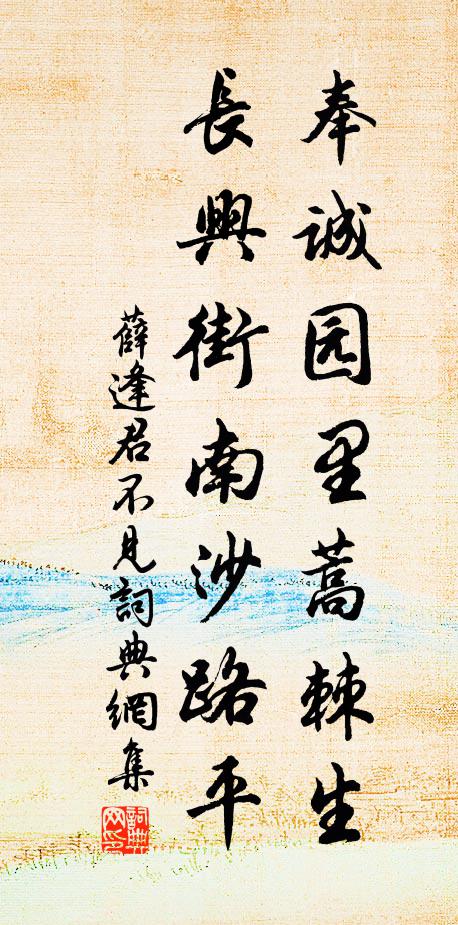 奉诚园里蒿棘生
長興街南沙路平
薛逢君不見詞典網集
詞典網印